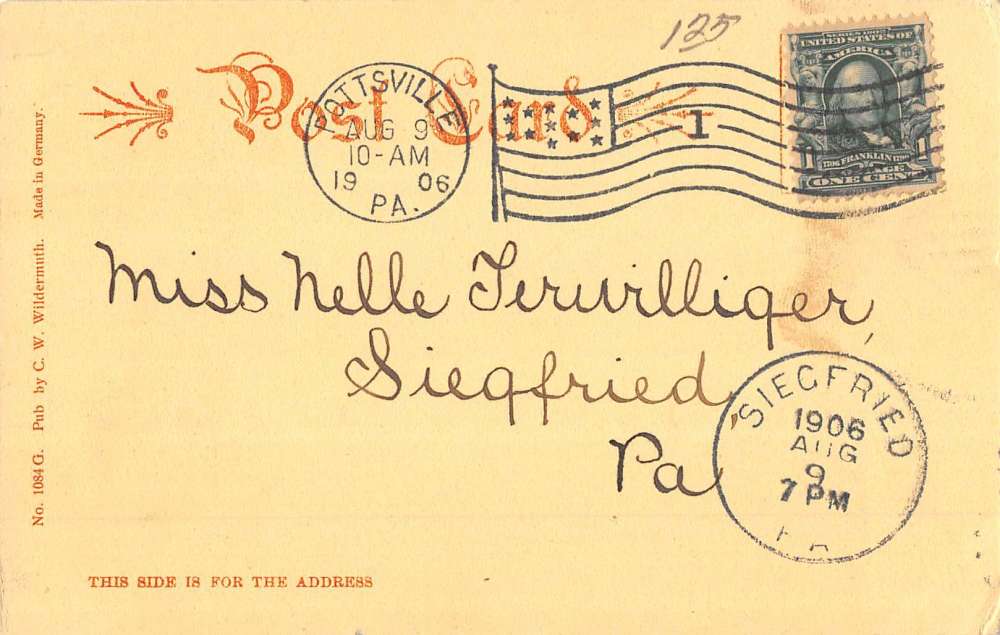 125
Post Card
POTTSVILLE
AUG 9
10-AM
19 06
PA.
1
SERIES 1902
UNITED STATES OF
AMERICA
1706 FRANKLIN 1790
ONE CENT
Miss Nelle Terwilliger,
Siegfried,
Pa
SIEGFRIED
1906
AUG
9
7 PM
PA
No. 1084 G. Pub by C. W. Wildermuth. Made in Germany.
THIS SIDE IS FOR THE ADDRESS